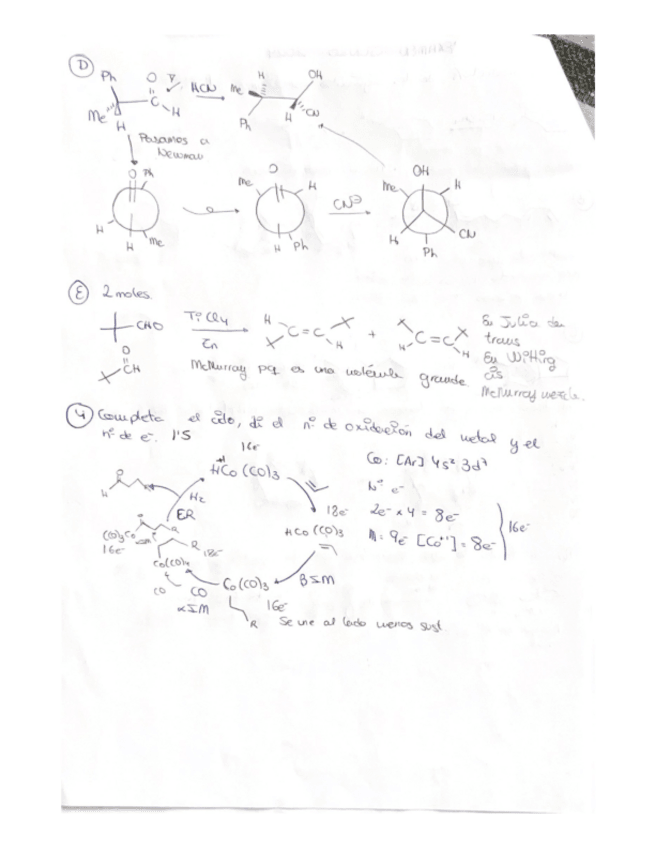 D
Ph O
Me C H HCN Me H OH
H Ph H CN
Pasamos a
Newman
O Ph Me O H Me OH H
H H Me H Ph CN⊖ H Ph CN
E 2 moles.
CHO TiCl4 H C=C + C=C En Julia da
Zn H H H trans
O En Wittig
CH McMurray pq es una molécula grande cis
McMurray mezcla.
4 Completa el ciclo, di el nº de oxidación del metal y el
nº de e-. 1'5
16e- Co: [Ar] 4s² 3d⁷
HCo(CO)3
H H2 Nº e-
ER 18e- 2e- x 4 = 8e-
(CO)3Co R HCo(CO)3 M: 9e- [Co+1] = 8e- 16e-
16e- R 18e-
Co(CO)4 Co(CO)3 βIM
CO CO
αIM 16e-
R Se une al lado menos sust.